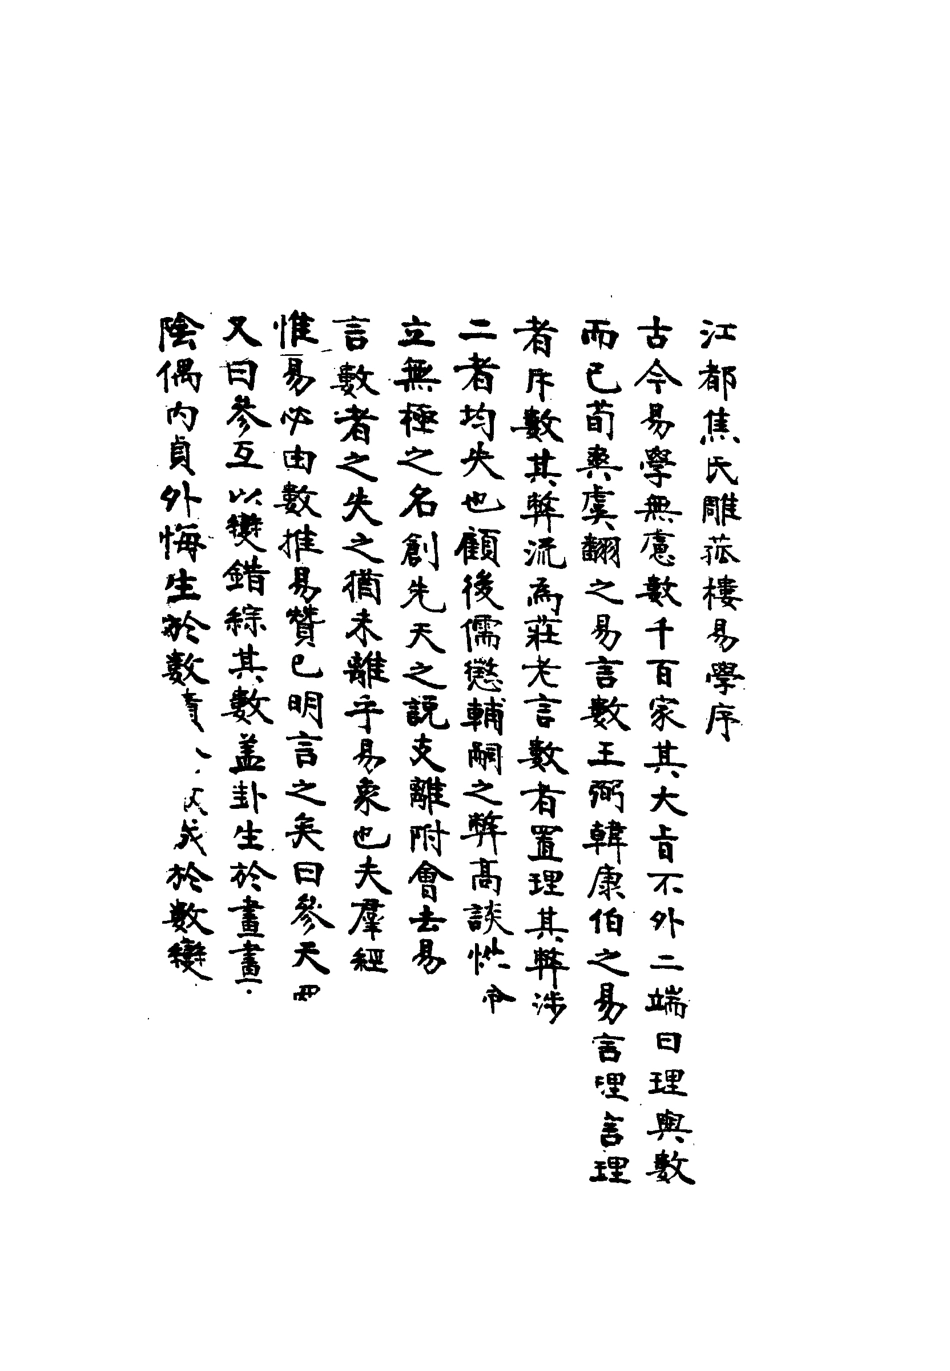 江都焦氏雕菰樓易學序
古今易學無慮數千百家其大旨不外二端曰理與數
而已荀爽虞翻之易言數王弼韓康伯之易言理言理
者斥數其弊流為莊老言數者置理其弊涉
二者均失也顧後儒懲輔嗣之弊高談性命
立無極之名創先天之說支離附會去易
言數者之失之猶未離乎易象也夫羣經
惟易必由數推易贊已明言之矣曰參天
又曰參互以變錯綜其數蓋卦生於畫畫
陰偶內貞外悔生於數 成於數變